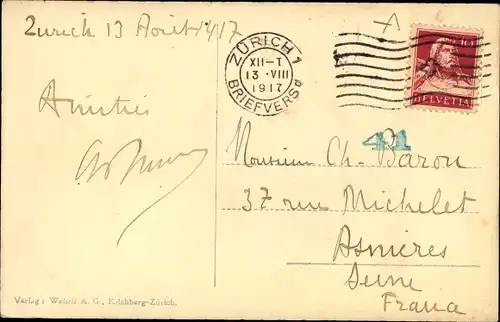 Zurich 13 Aout 1917
ZÜRICH 1
XII-1
13.VIII
1917
BRIEFVERSd
10
HELVETIA
Amitiés
41
Monsieur Ch. Baron
37 rue Michelet
Asnieres
Seine
France
Verlag: Wehrli A. G., Kilchberg-Zürich.